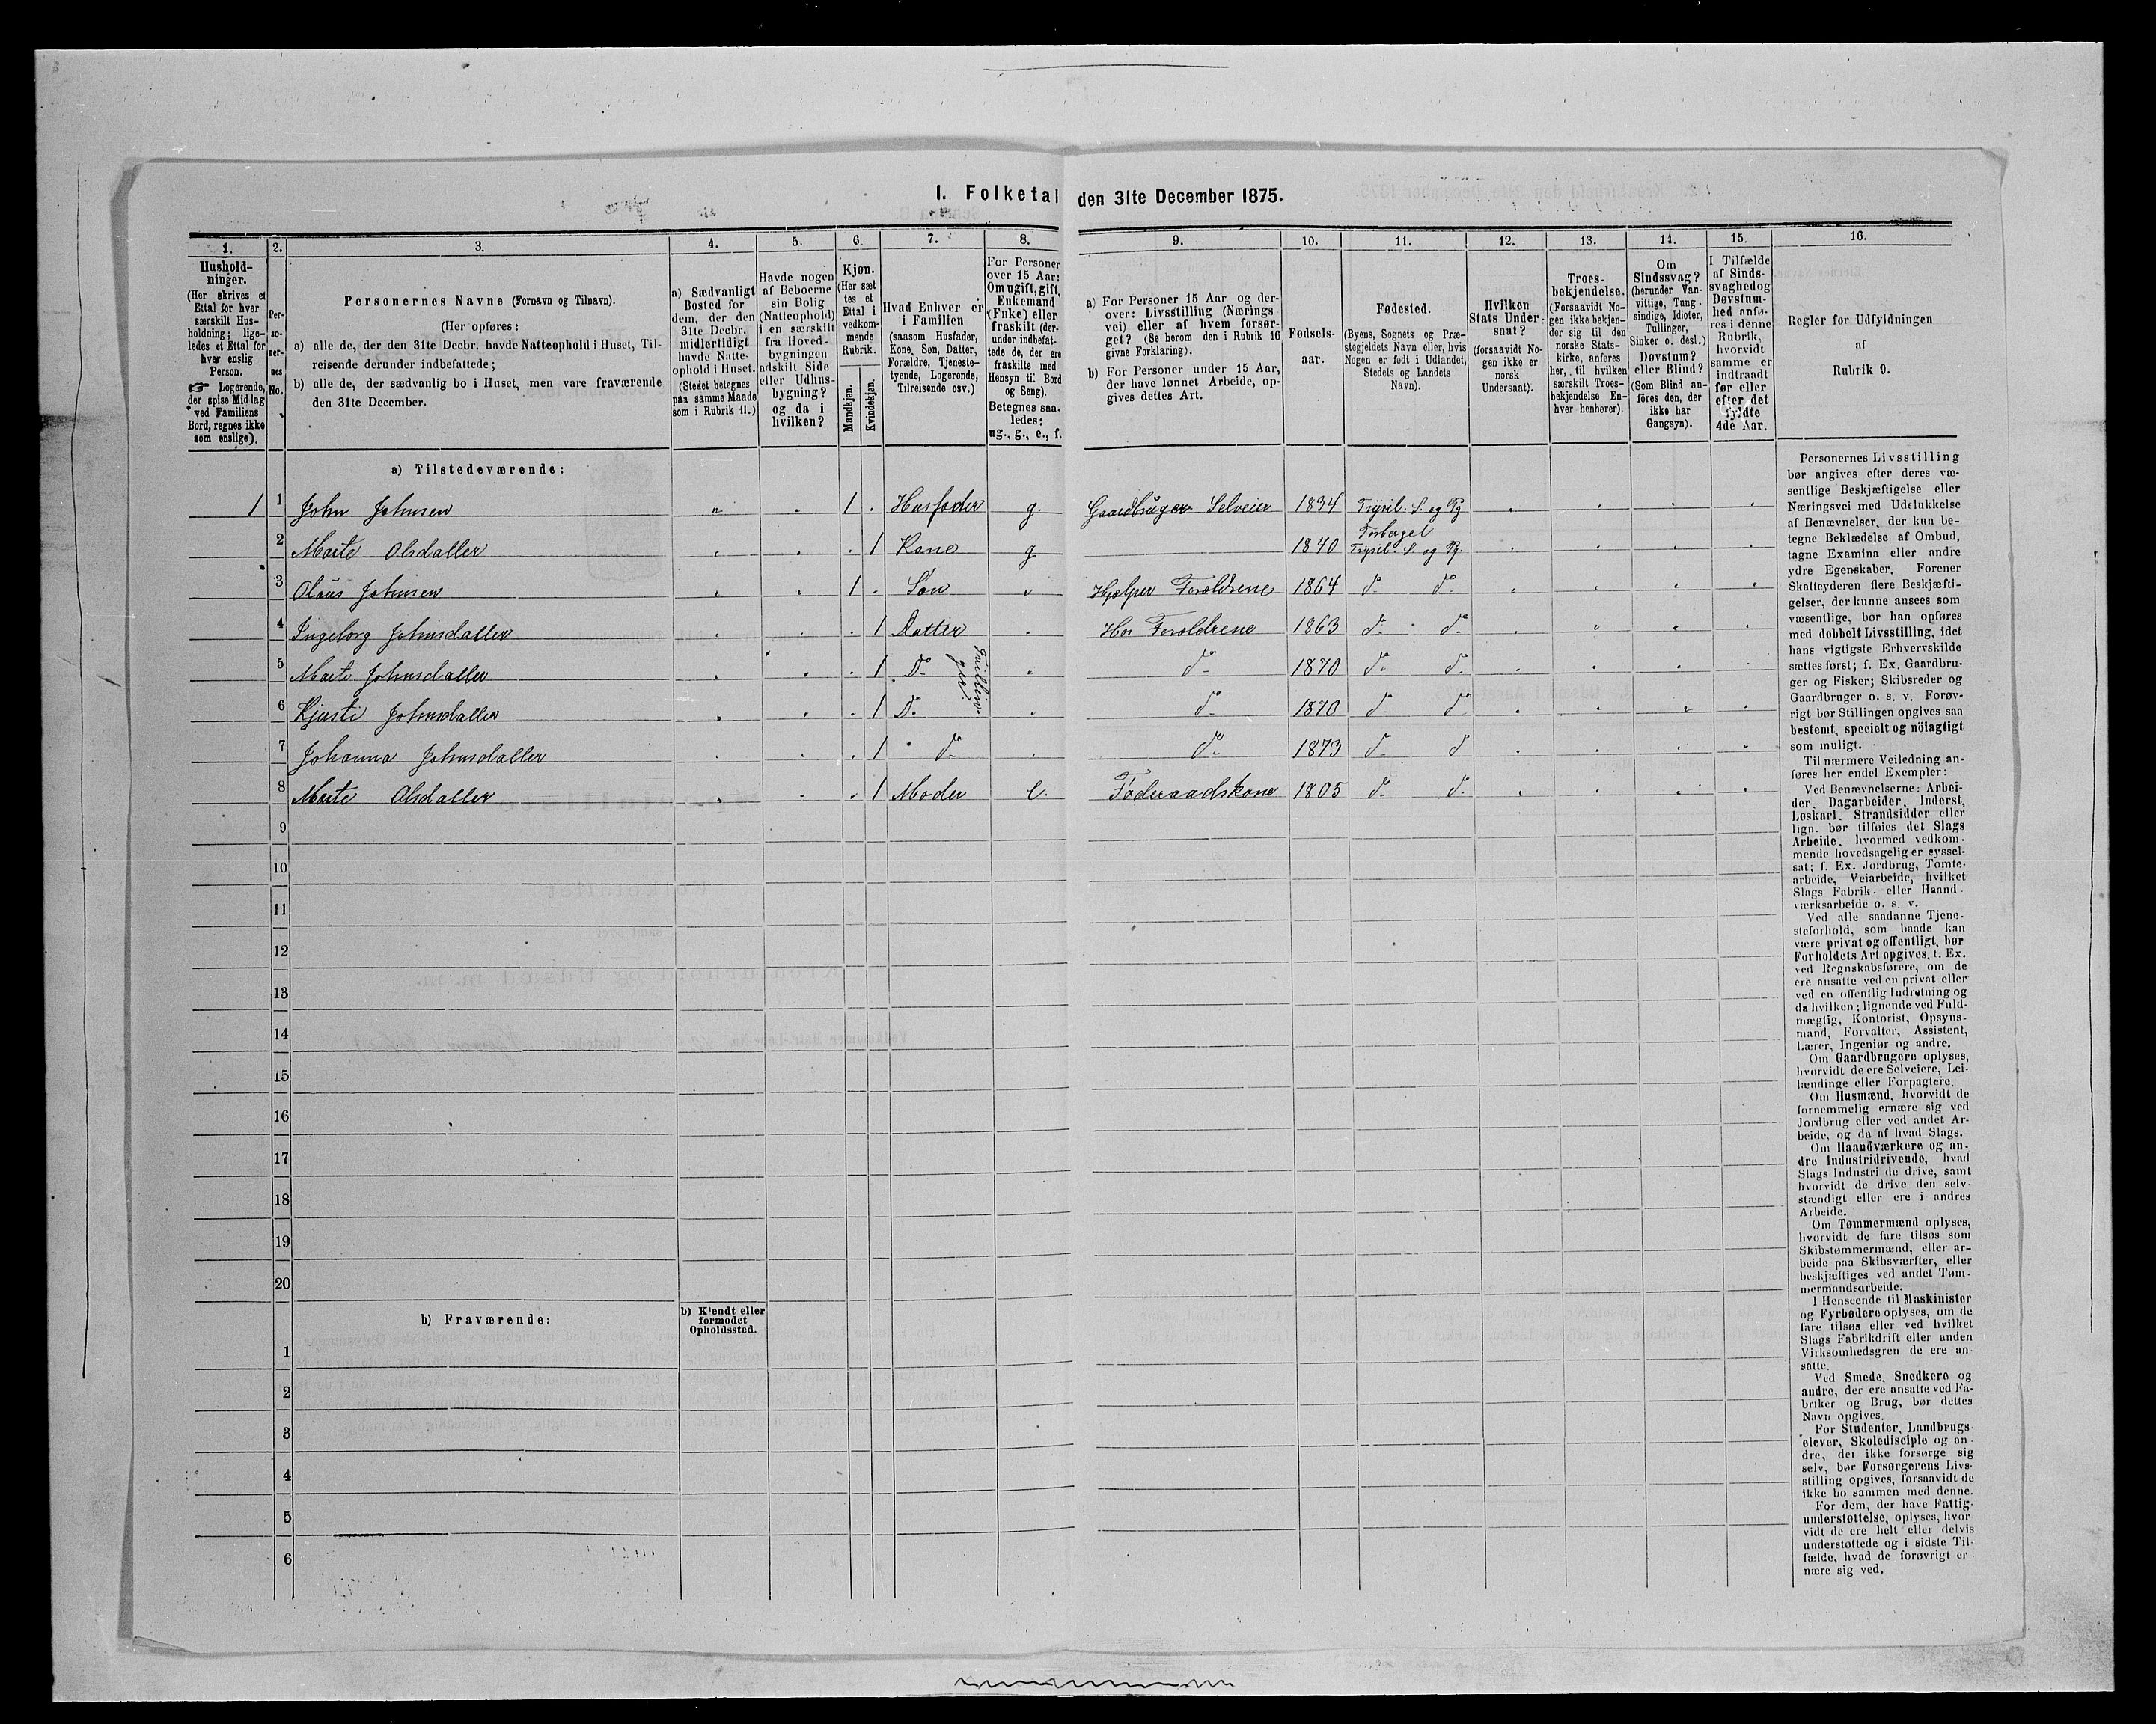 I. Folketal den 31te December 1875.
1. 2. 3. 4. 5. 6. 7. 8. 9. 10. 11. 12. 13. 14. 15. 16.
Hushold-
ninger.
(Her skrives et
Ettal for hver
særskilt Hus-
holdning; lige-
ledes et Ettal for
hver enslig
Person.
☞ Logerende,
der spise Middag
ved Familiens
Bord, regnes ikke
som enslige).
Per-
so-
ner-
nes
No.
Personernes Navne (Fornavn og Tilnavn).
(Her opføres:
a) alle de, der den 31te Decbr. havde Natteophold i Huset, Til-
reisende derunder indbefattede;
b) alle de, der sædvanlig bo i Huset, men vare fraværende
den 31te December.
a) Sædvanligt
Bosted for
dem, der den
31te Decbr.
midlertidigt
havde Natte-
ophold i Huset.
(Stedet betegnes
paa samme Maade
som i Rubrik 11.)
Havde nogen
af Beboerne
sin Bolig
(Natteophold)
i en særskilt
fra Hoved-
bygningen
adskilt Side
eller Udhus-
bygning?
og da i
hvilken?
Kjøn.
(Her sæt
tes et
Ettal i
vedkom-
mende
Rubrik.
Mandkjøn.
Kvindekjøn.
Hvad Enhver er
i Familien
(saasom Husfader,
Kone, Søn, Datter,
Forældre, Tjeneste-
tyende, Logerende,
Tilreisende osv.)
For Personer
over 15 Aar:
Om ugift, gift,
Enkemand
(Enke) eller
fraskilt (der-
under indbefat-
tede de, der ere
fraskilte med
Hensyn til Bord
og Seng).
Betegnes saa-
ledes:
ug., g., e., f.
a) For Personer 15 Aar og der-
over: Livsstilling (Nærings
vei) eller af hvem forsør-
get? (Se herom den i Rubrik 16
givne Forklaring).
b) For Personer under 15 Aar,
der have lønnet Arbeide, op-
gives dettes Art.
Fødsels-
aar.
Fødested.
(Byens, Sognets og Præ-
stegjeldets Navn eller, hvis
Nogen er født i Udlandet,
Stedets og Landets
Navn).
Hvilken
Stats Under-
saat?
(forsaavidt No-
gen ikke er
norsk
Undersaat).
Troes-
bekjendelse.
(Forsaavidt No-
gen ikke bekjen-
der sig til den
norske Stats-
kirke, anføres
her, til hvilken
særskilt Troes-
bekjendelse En-
hver henhører).
Om
Sindssvag?
(herunder Van-
vittige, Tung-
sindige, Idioter,
Tullinger,
Sinker o. desl.)
Døvstum?
eller Blind?
(Som Blind an-
føres den, der
ikke har
Gangsyn).
I Tilfælde
af Sinds-
svaghed og
Døvstum-
hed anfø-
res i denne
Rubrik,
hvorvidt
samme er
indtraadt
før eller
efter det
fyldte
4de Aar.
Regler for Udfyldningen
af
Rubrik 9.
a) Tilstedeværende:
1 1 John Johnsen 1 Husfader g. Gaardbruger Selveier 1834 Trysil. S. og Pg
2 Marte Olsdatter 1 Kone g 1840 Trysil. S. og Pg.
3 Olaus Johnsen 1 Søn Hjælper Forældrene 1864 do do
4 Ingeborg Johnsdatter 1 Datter Hos Forældrene 1863 do do
5 Marte Johnsdatter 1 Do do 1870 do do
6 Kjersti Johnsdatter 1 Do do 1870 do do
7 Johanna Johnsdatter 1 do do 1873 do d
8 Marte Olsdatter 1 Moder e. Føderaadskone 1805 do do
9
10
11
12
13
14
15
16
17
18
19
20
b) Fraværende:
b) Kjendt eller
formodet
Opholdssted.
1
2
3
4
5
6
Personernes Livsstilling
bør angives efter deres væ-
sentlige Beskjæftigelse eller
Næringsvei med Udelukkelse
af Benævnelser, der kun be-
tegne Beklædelse af Ombud,
tagne Examina eller andre
ydre Egenskaber. Forener
Skatteyderen flere Beskjæfti-
gelser, der kunne ansees som
væsentlige, bør han opføres
med dobbelt Livsstilling, idet
hans vigtigste Erhvervskilde
sættes først; f. Ex. Gaardbru-
ger og Fisker; Skibsreder og
Gaardbruger o. s. v. Forøv-
rigt bør Stillingen opgives saa
bestemt, specielt og nöiagtigt
som muligt.
Til nærmere Veiledning an-
føres her endel Exempler:
Ved Benævnelserne: Arbei-
der, Dagarbeider, Inderst,
Løskarl, Strandsidder eller
lign. bør tilføies det Slags
Arbeide, hvormed vedkom-
mende hovedsagelig er syssel-
sat; f. Ex. Jordbrug, Tomte-
arbeide, Veiarbeide, hvilket
Slags Fabrik- eller Haand-
værksarbeide o. s. v.
Ved alle saadanne Tjene-
steforhold, som baade kan
være privat og offentligt, bør
Forholdets Art opgives, f. Ex.
ved Regnskabsførere, om de
ere ansatte ved en privat eller
ved en offentlig Indretning og
da hvilken; lignende ved Fuld-
mægtig, Kontorist, Opsyns-
mand, Forvalter, Assistent,
Lærer, Ingeniør og andre.
Om Gaardbrugere oplyses,
hvorvidt de ere Selveiere, Lei-
lændinge eller Forpagtere.
Om Husmænd, hvorvidt de
fornemmelig ernære sig ved
Jordbrug eller ved andet Ar-
beide, og da af hvad Slags.
Om Haandværkere og an-
dre Industridrivende, hvad
Slags Industri de drive, samt
hvorvidt de drive den selv-
stændigt eller ere i andres
Arbeide.
Om Tømmermænd oplyses,
hvorvidt de fare tilsøs som
Skibstømmermænd, eller ar-
beide paa Skibsværfter, eller
beskjæftiges ved andet Tøm-
mermandsarbeide.
I Henseende til Maskinister
og Fyrbødere oplyses, om de
fare tilsøs eller ved hvilket
Slags Fabrikdrift eller anden
Virksomhedsgren de ere an-
satte.
Ved Smede, Snedkere og
andre, der ere ansatte ved Fa-
briker og Brug, bør dettes
Navn opgives.
For Studenter, Landbrugs-
elever, Skoledisciple og an-
dre, der ikke forsørge sig
selv, bør Forsørgerens Livs-
stilling opgives, forsaavidt de
ikke bo sammen med denne.
For dem, der have Fattig-
understøttelse, oplyses, hvor-
vidt de ere helt eller delvis
understøttede og i sidste Til-
fælde, hvad de forøvrigt er-
nære sig ved.